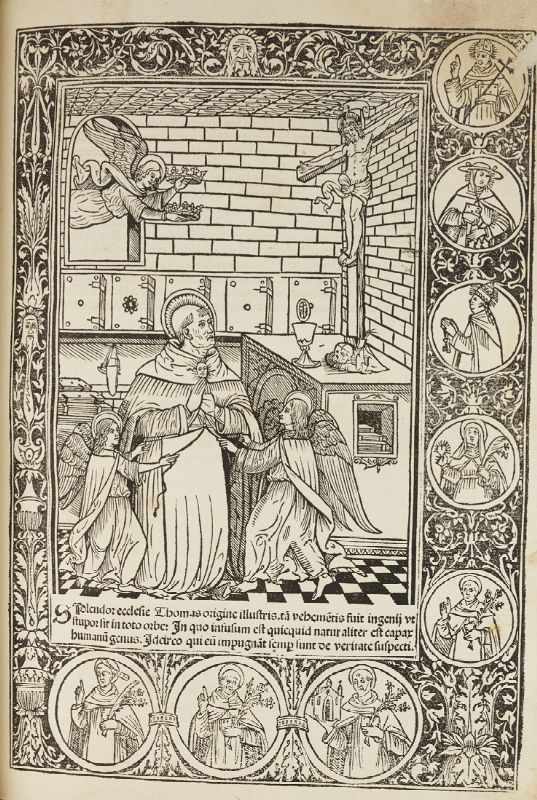 SPlendor ecclesie Thomas origine illustris, tã vehemẽtis fuit ingenij vt
stupor sit in toto orbe: In quo infusum est quicquid naturaliter est capax
humanũ genus. Jdcirco qui eũ impugnãt semꝑ sunt de veritate suspecti.